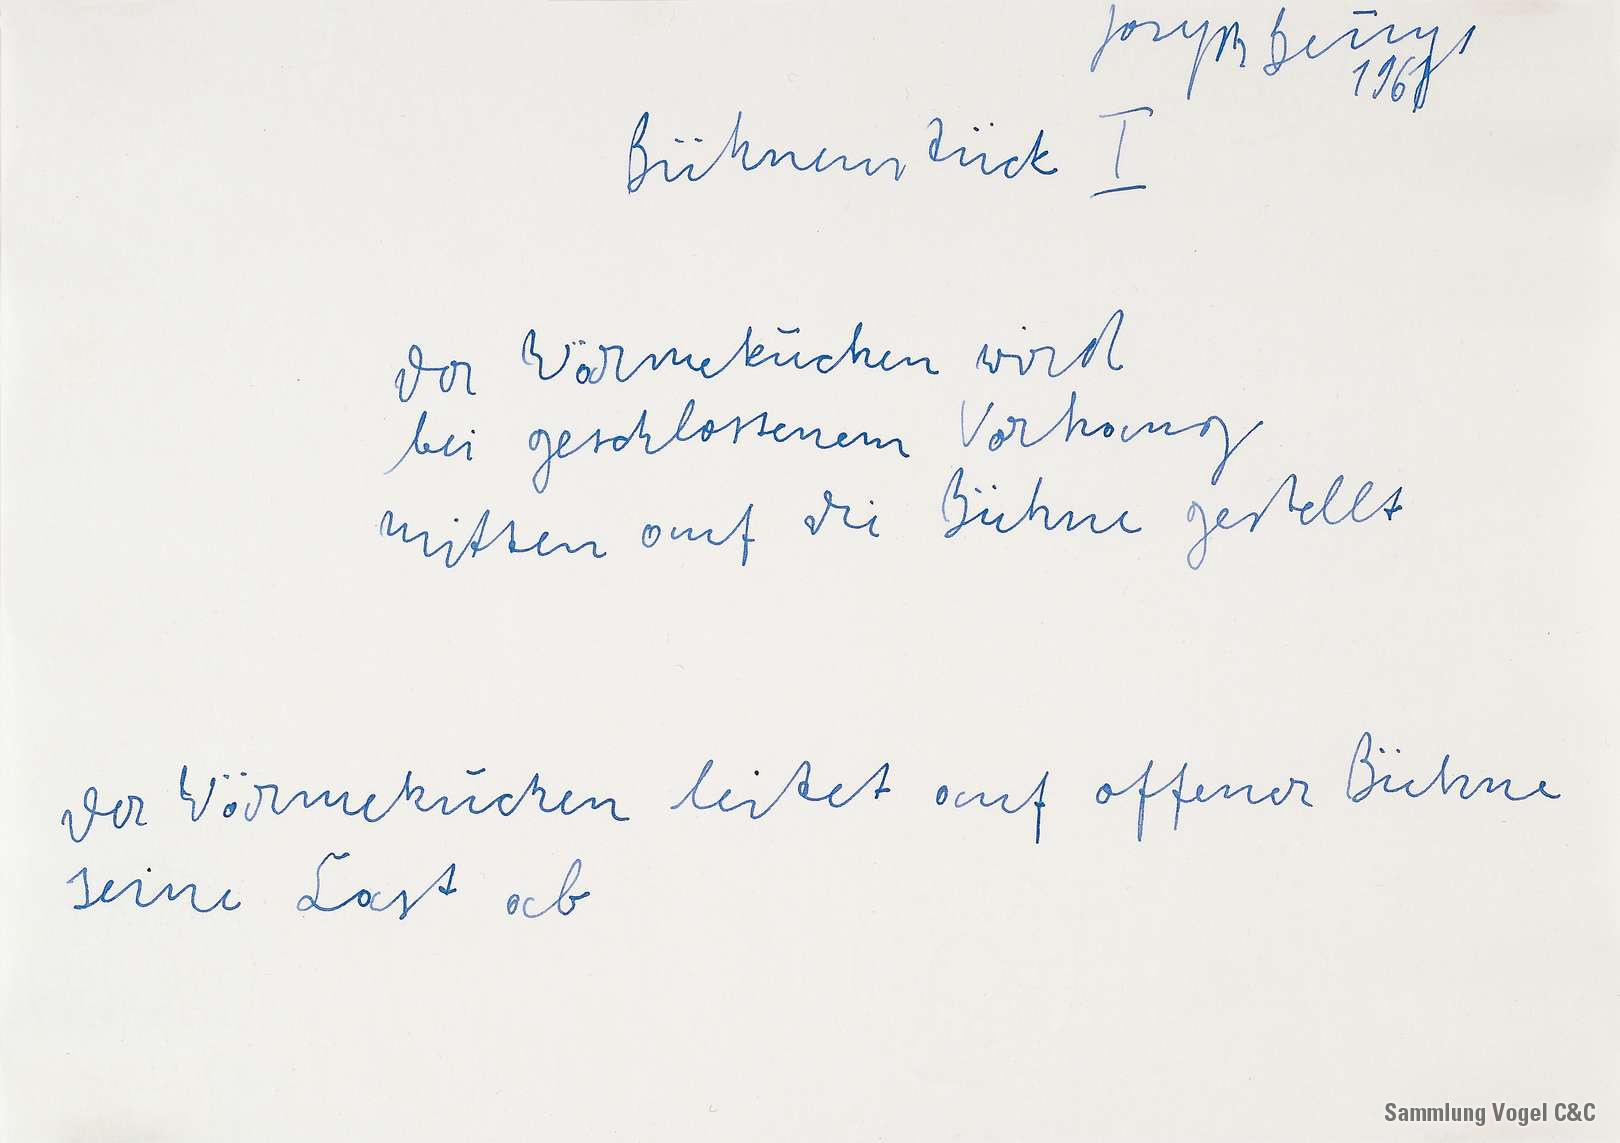 Joseph Beuys
Bühnenstück I
Der Wärmekuchen wird
bei geschlossenem Vorhang
mitten auf die Bühne gestellt
Der Wärmekuchen leitet auf offener Bühne
seine Last ab
Sammlung Vogel C&C